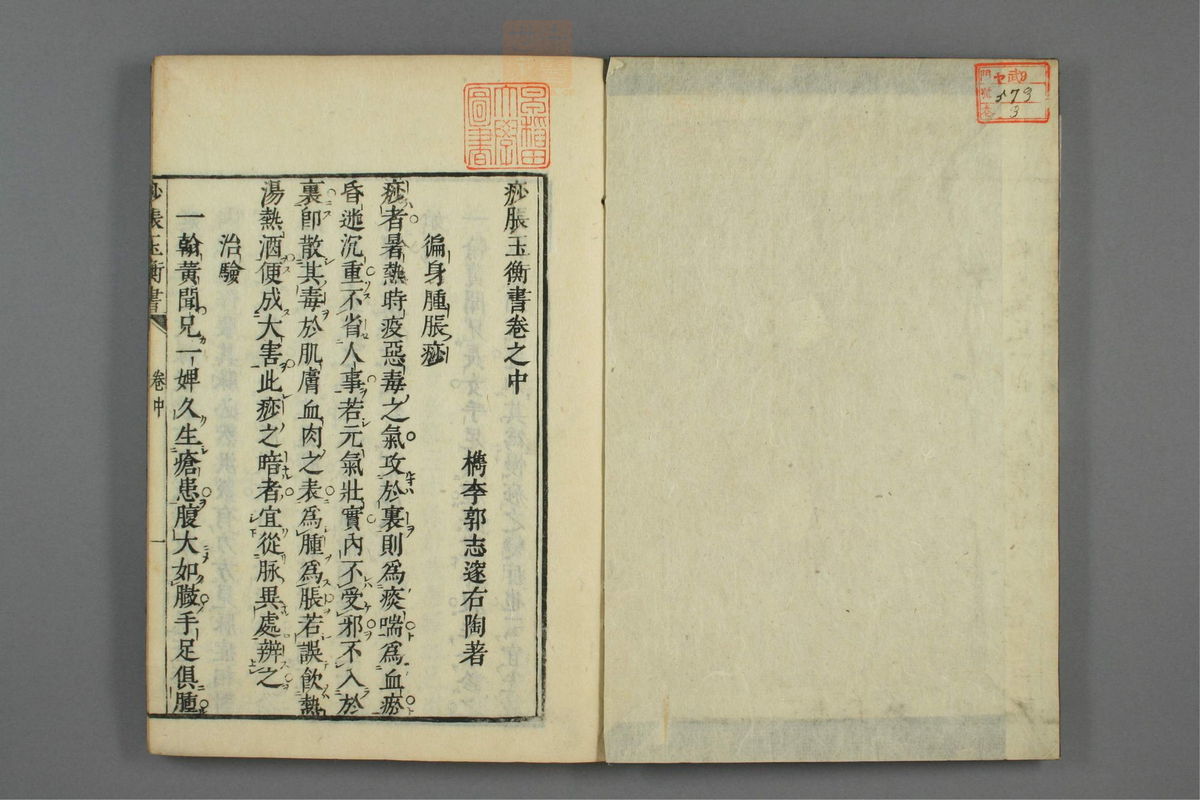 痧脹玉衡書卷之中
檇李郭志邃右陶著
徧身腫脹痧
痧者暑熱時疫惡毒之氣攻於裏則爲痰喘爲血瘀
昏迷沉重不省人事若元氣壯實內不受邪不入於
裏即散其毒於肌膚血肉之表爲腫爲脹若誤飲熱
湯熱酒便成大害此痧之暗者宜從脉異處辨之
治驗
一翰黃聞兄一婢久生瘡患腹大如臌手足俱腫
痧脹玉衡書 卷中 一
早稻田大學圖書
573
3